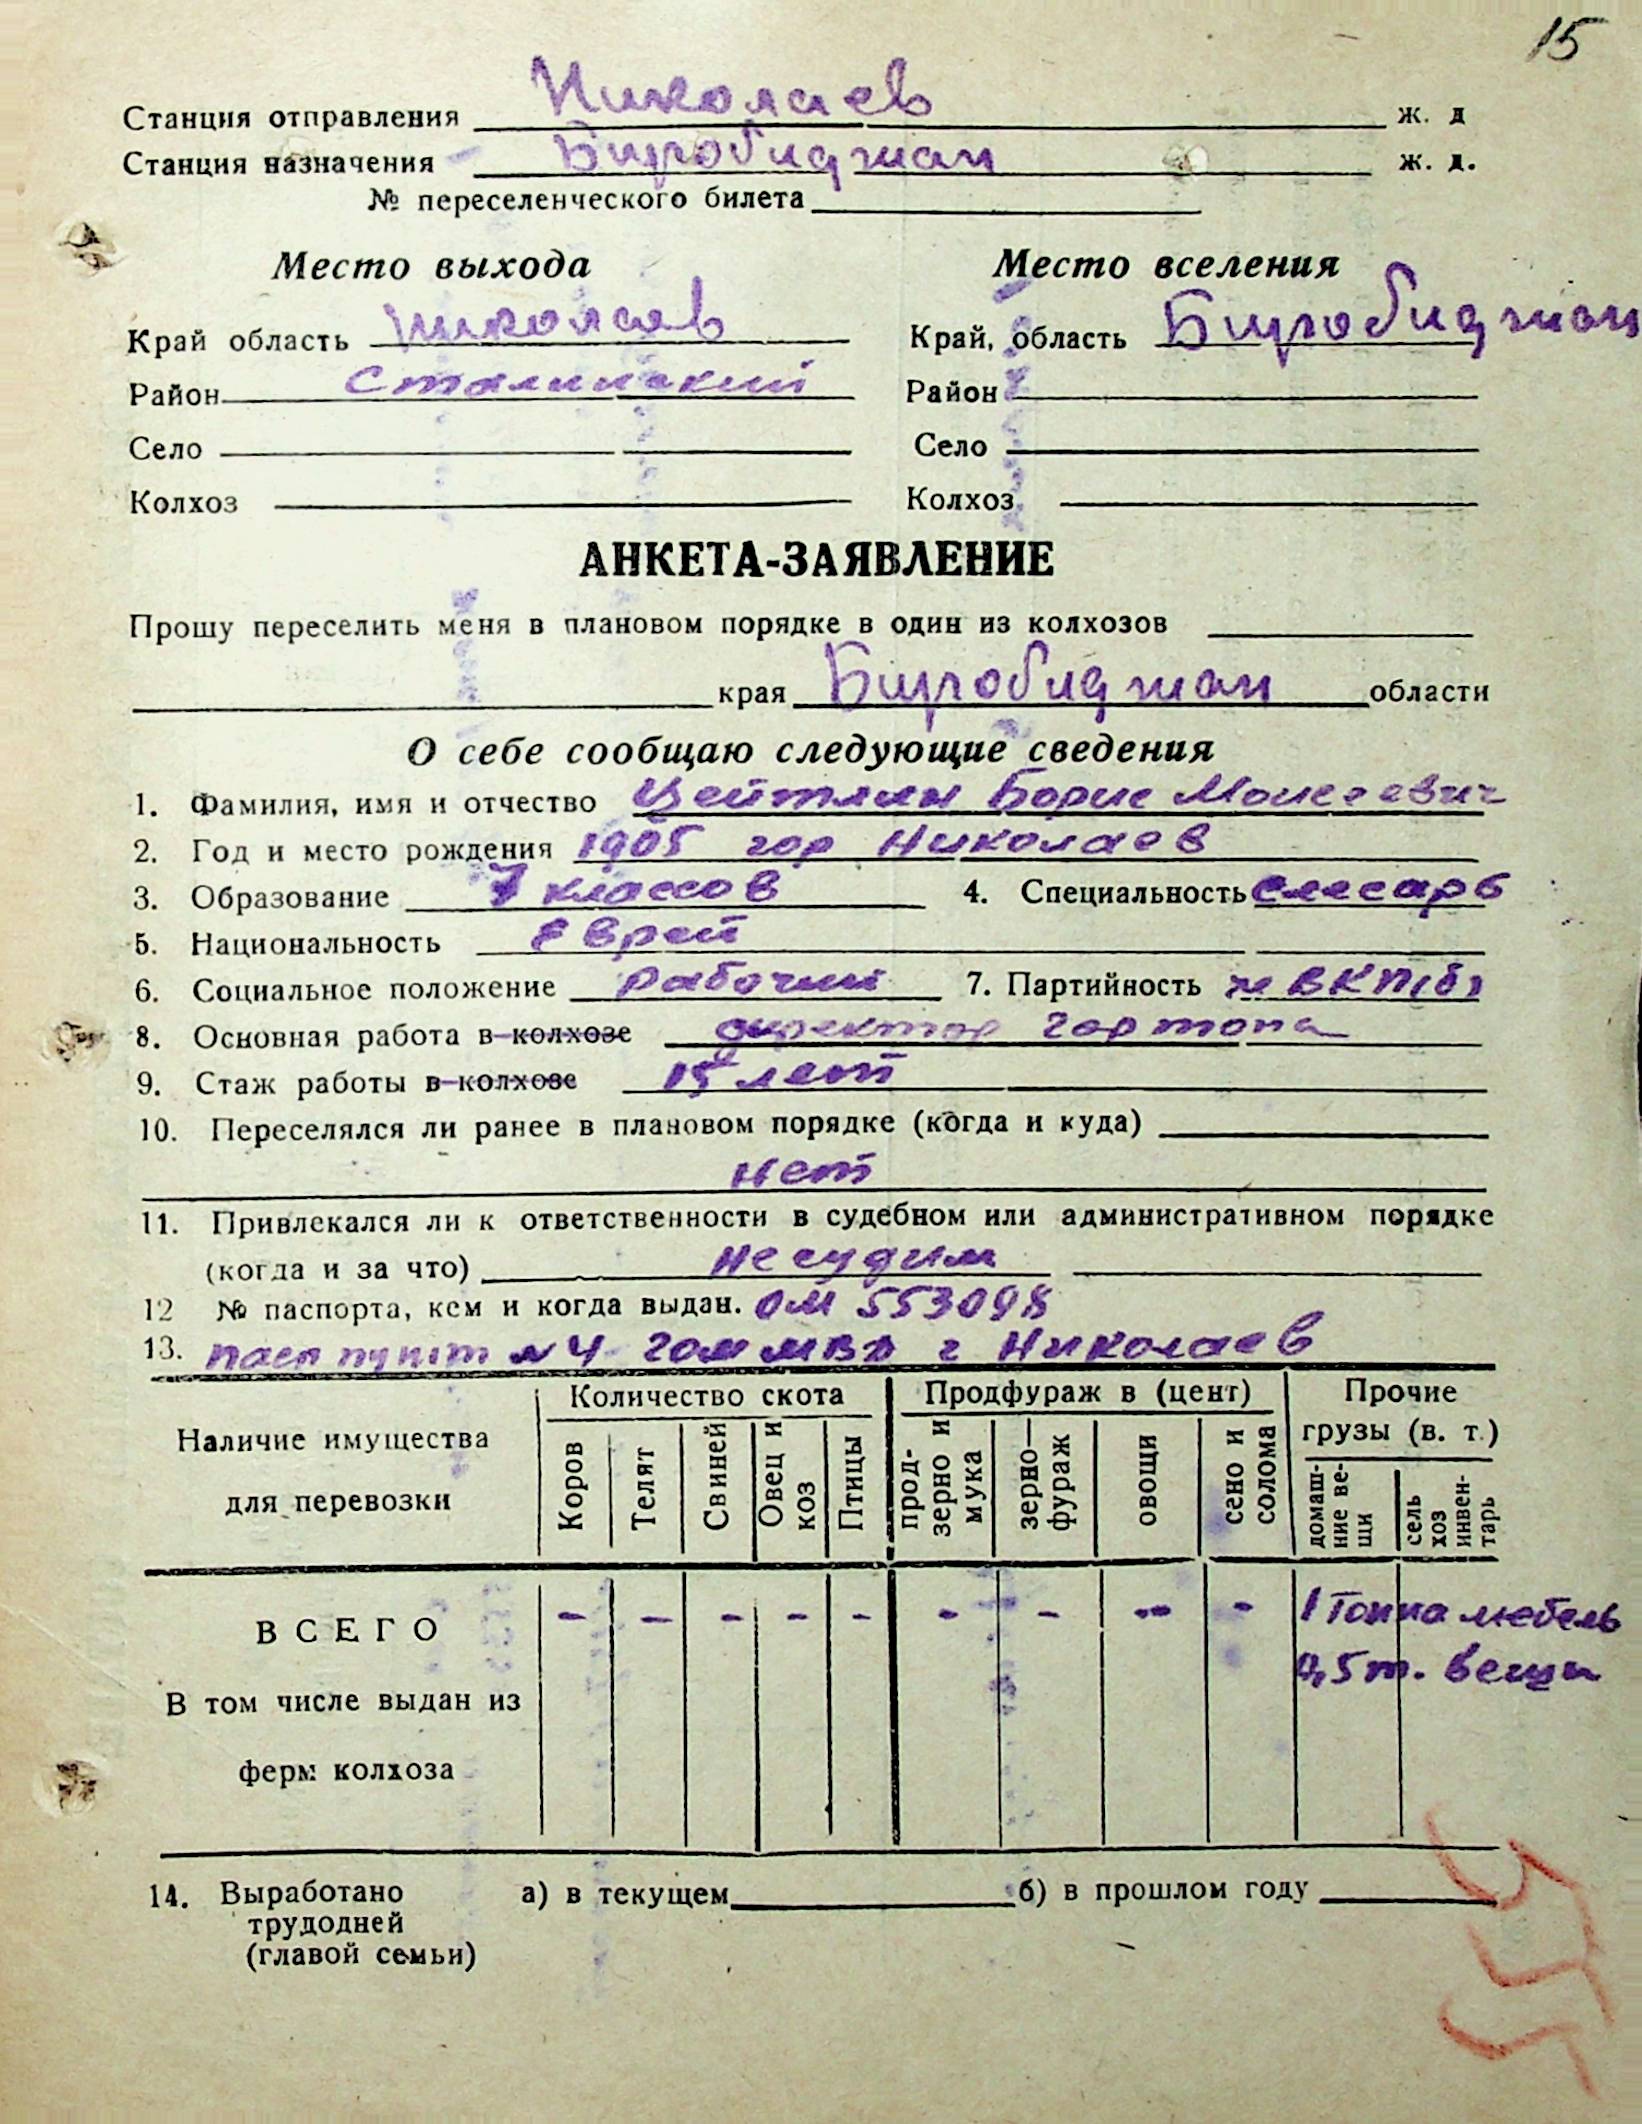 15
Станция отправления Николаев ж. д
Станция назначения Биробиджан ж. д.
№ переселенческого билета
Место выхода Место вселения
Край область Николаев Край, область Биробиджан
Район Сталинский Район
Село Село
Колхоз Колхоз
АНКЕТА-ЗАЯВЛЕНИЕ
Прошу переселить меня в плановом порядке в один из колхозов
края Биробиджан области
О себе сообщаю следующие сведения
1. Фамилия, имя и отчество Цейтлин Борис Моисеевич
2. Год и место рождения 1905 гор Николаев
3. Образование 7 классов 4. Специальность слесарь
5. Национальность Еврей
6. Социальное положение рабочий 7. Партийность ВКП(б)
8. Основная работа в колхозе директор гортопа
9. Стаж работы в колхозе 15 лет
10. Переселялся ли ранее в плановом порядке (когда и куда)
нет
11. Привлекался ли к ответственности в судебном или административном порядке
(когда и за что) не судим
12 № паспорта, кем и когда выдан. ОМ 553098
13. пасп пункт №4 гом МВД г Николаев
Наличие имущества для перевозки
Количество скота Продфураж в (цент) Прочие грузы (в. т.)
Коров Телят Свиней Овец и коз Птицы прод-зерно и мука зерно-фураж овощи сено и солома домаш-ние ве-щи сель хоз инвен-тарь
ВСЕГО - - - - - - - - - 1 тонна мебель
0,5 т. вещи
В том числе выдан из
ферм колхоза
14. Выработано а) в текущем б) в прошлом году
трудодней
(главой семьи)